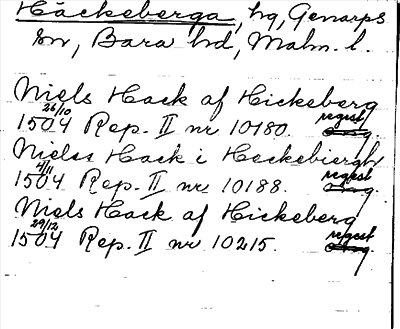 Häckeberga, hg, Genarps
sn, Bara hd, Malm. l.
Niels Hack af Hickeberg
1504 26/10 Rep. II nr 10180. regest
Nielss Hack i Heckebiergh
1504 4/11 Rep. II nr 10188. regest
Niels Hack af Hickeberg
1504 29/12 Rep. II nr 10215. regest